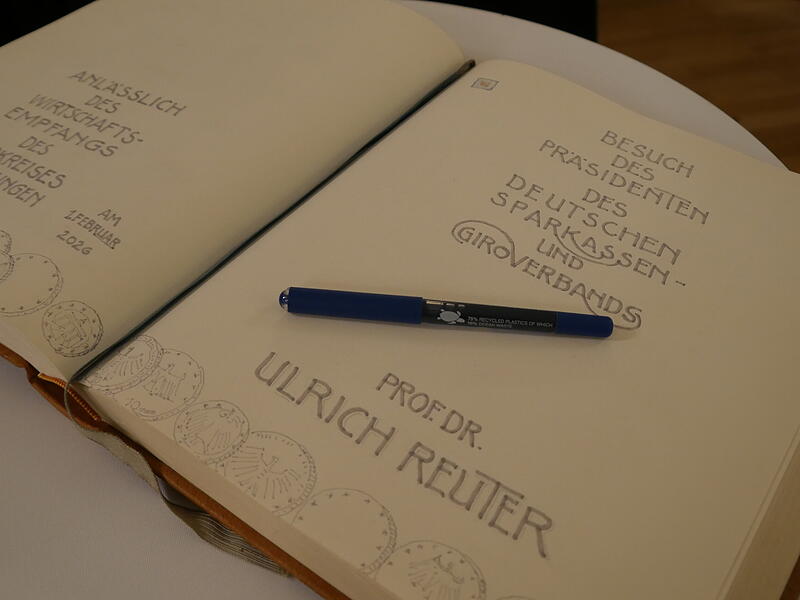 ANLÄSSLICH
DES
WIRTSCHAFTS-
EMPFANGS
DES
KREISES
NGEN
AM
1.FEBRUAR
2026
BESUCH
DES
PRÄSIDENTEN
DES
DEUTSCHEN
SPARKASSEN-
UND
GIROVERBANDS
75% RECYCLED PLASTICS OF WHICH
50% OCEAN WASTE
PROF. DR.
ULRICH REUTER